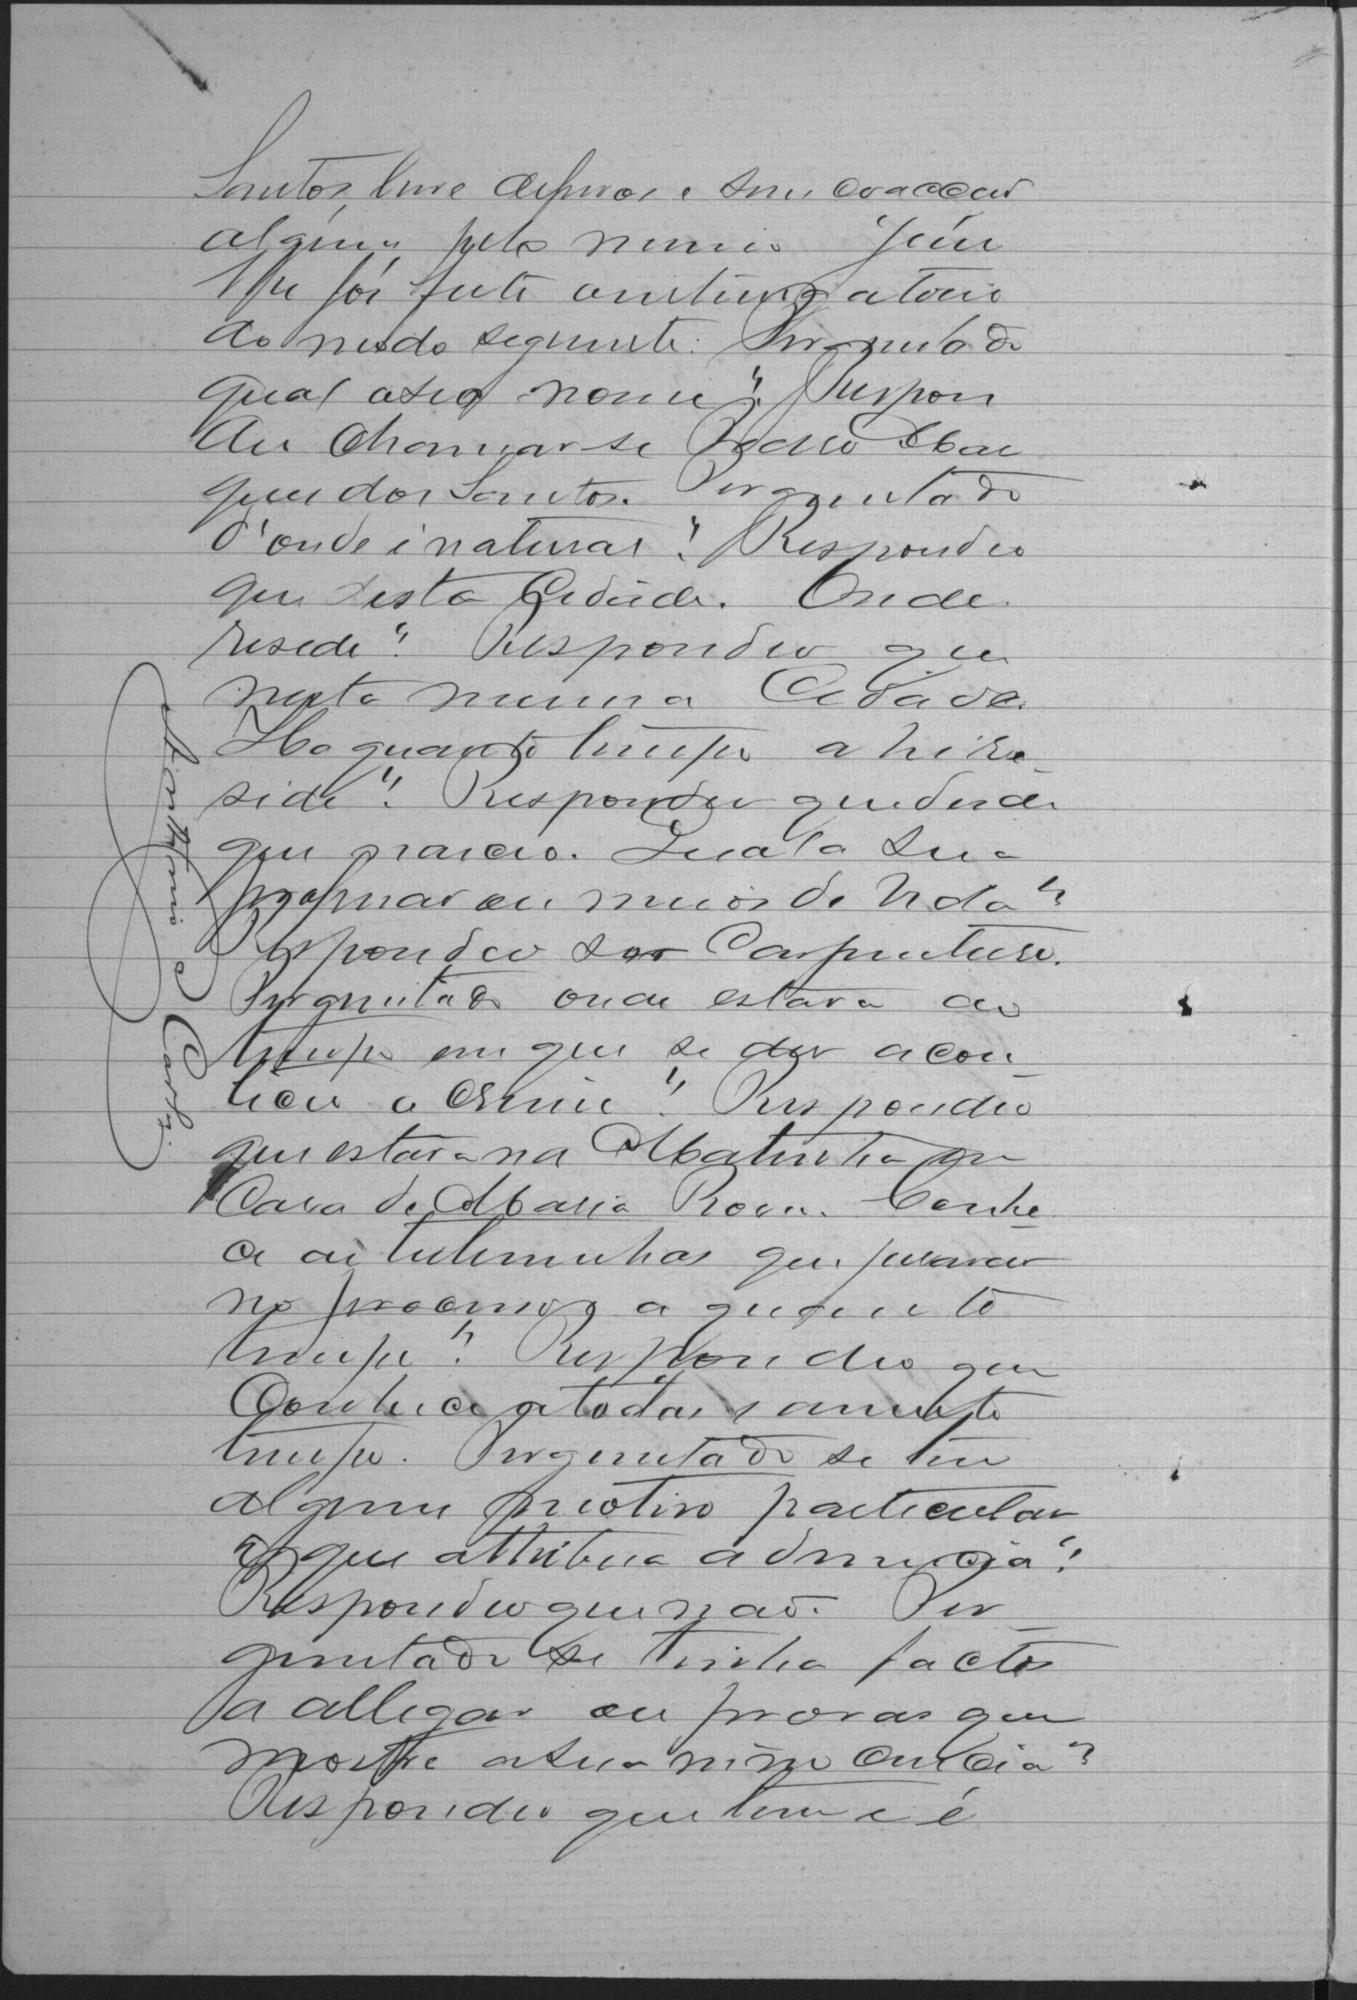 Santos, livre de ferros e sem coacção
alguma pelo mesmo Juiz
lhe foi feito o interrogatorio
do modo seguinte: Perguntado
qual o seu nome? Respon
deu chamar-se Pedro
dos Santos. Perguntado
d'onde é natural? Respondeo
que desta Cidade. Onde
reside? Respondeo que
nesta mesma Cidade.
Ha quanto tempo ahi re-
side? Respondeu que desde
que nasceo. Qual a sua
profissão ou meios de vida?
Respondeo ser Carpinteiro.
Perguntado onde estava ao
tempo em que se deu acon-
teceu o crime? Respondeo
que estava na Matinha em
Casa de Maria Rosa. Conhe-
ce as testemunhas que juraram
no processo a quanto
tempo? Respondeo que
Conhece a todas a muito
tempo. Perguntado se tem
algum motivo particular
a que attribua a denuncia?
Respondeo que não. Per-
guntado se tinha factos
a allegar ou provas que
mostre a sua innocencia?
Respondeo que tem e é